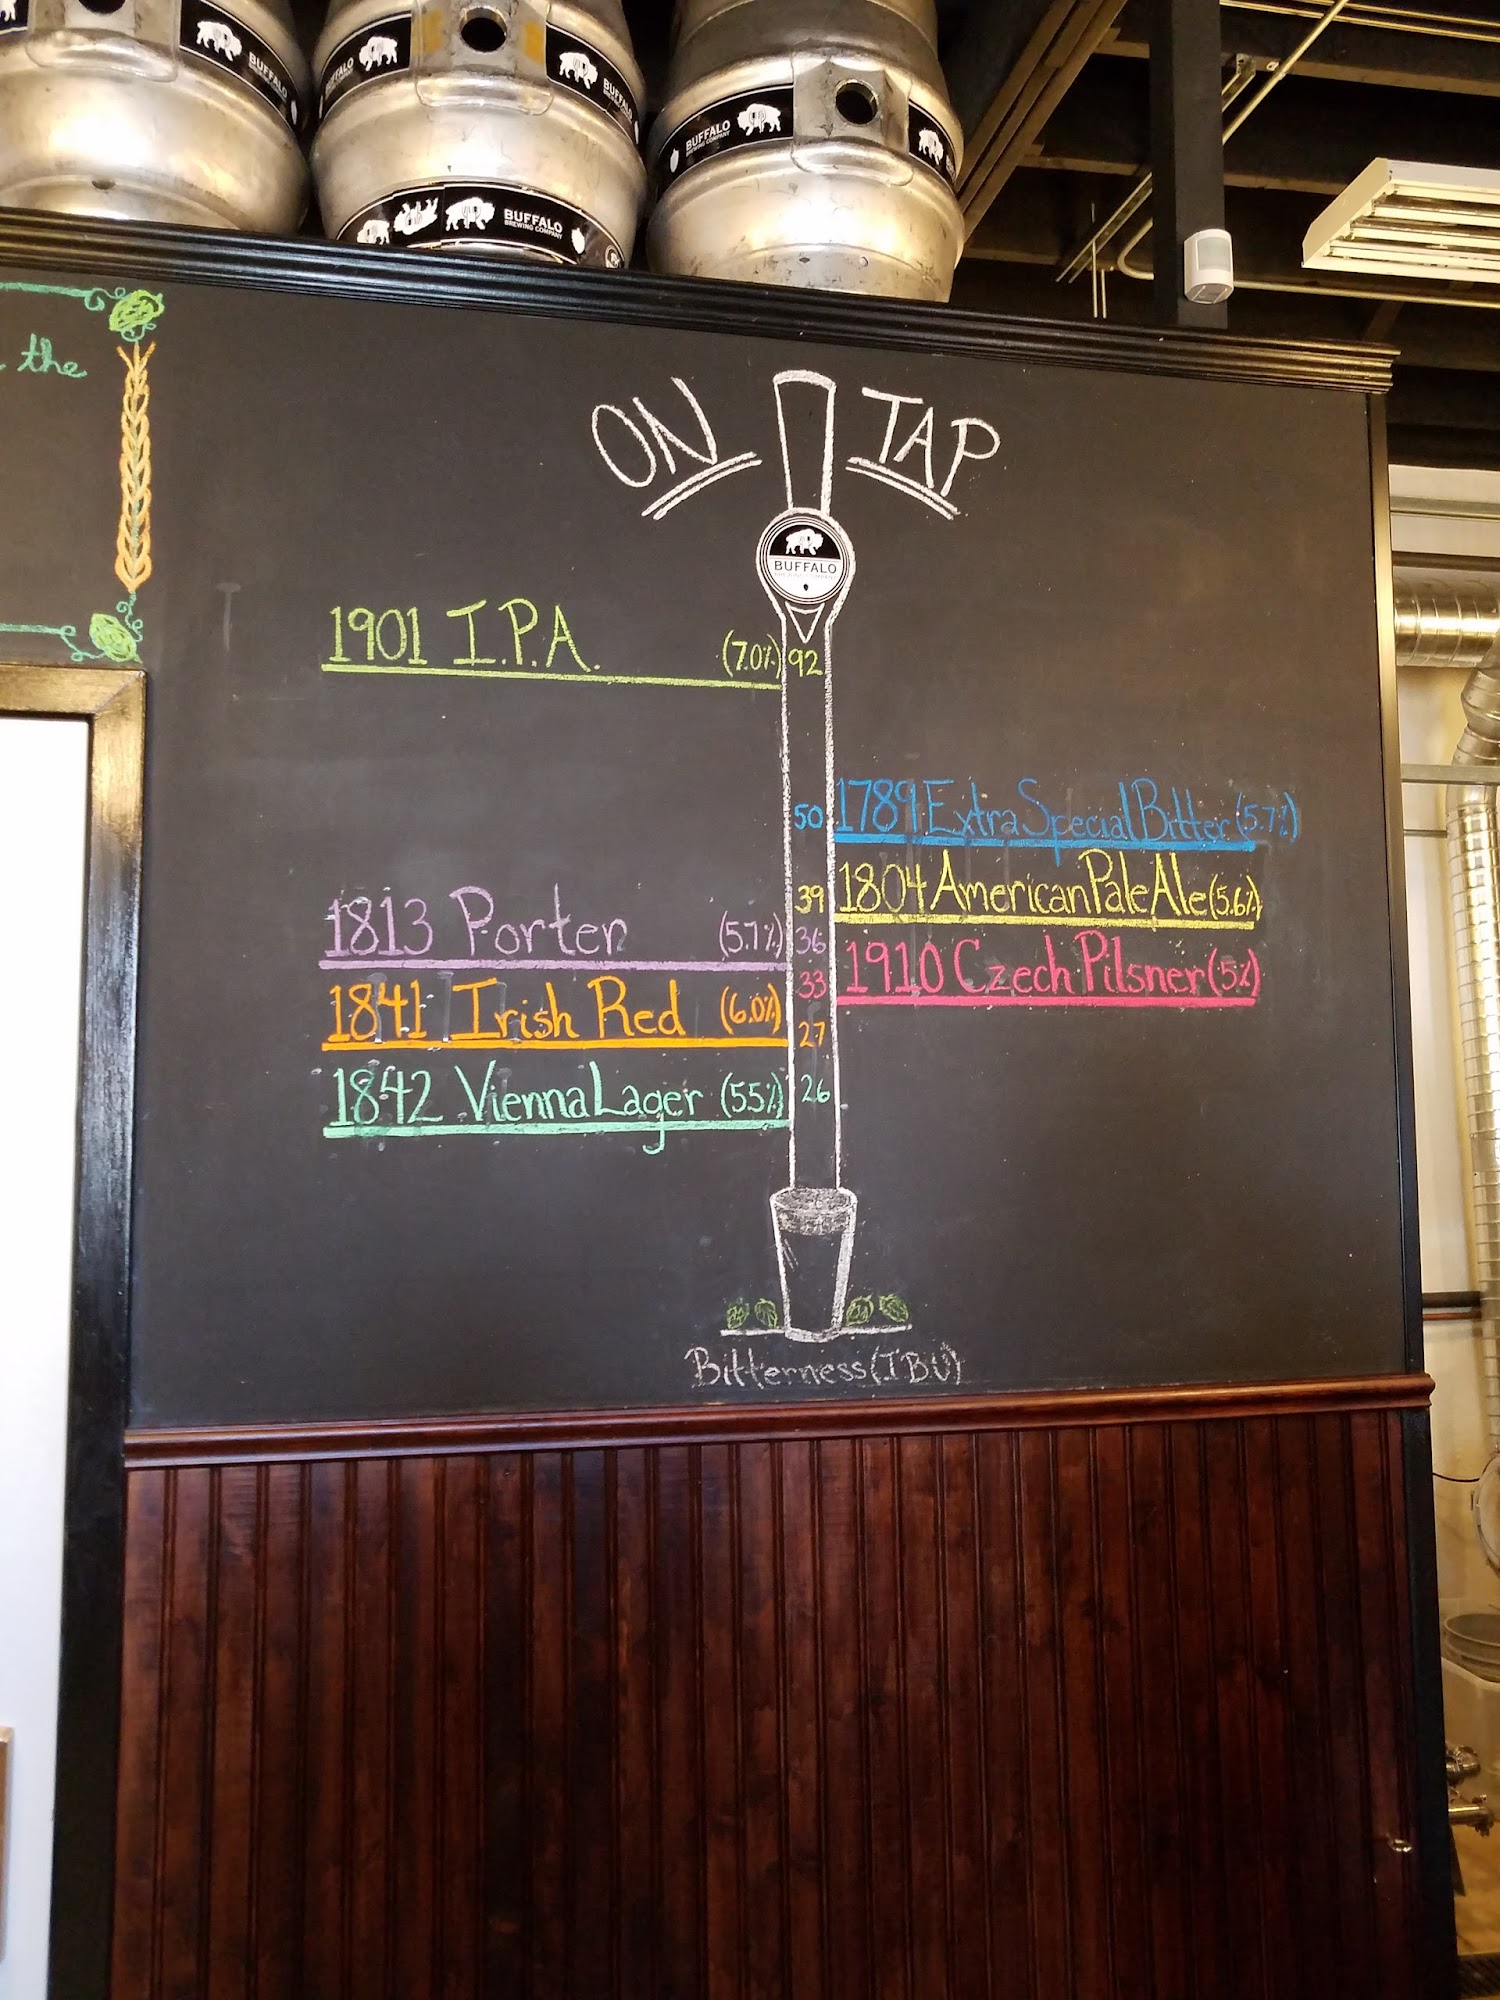 BUFFALO
BUFFALO
BUFFALO
BREWING COMPANY
BUFFALO
BREWING COMPANY
the
ON TAP
BUFFALO
BREWING COMPANY
1901 I.P.A. (7.0%) 92
50 1789 Extra Special Bitter (5.7%)
39 1804 American Pale Ale (5.6%)
1813 Porter (5.7%) 36
33 1910 Czech Pilsner (5%)
1841 Irish Red (6.0%) 27
1842 Vienna Lager (5.5%) 26
Bitterness (IBU)